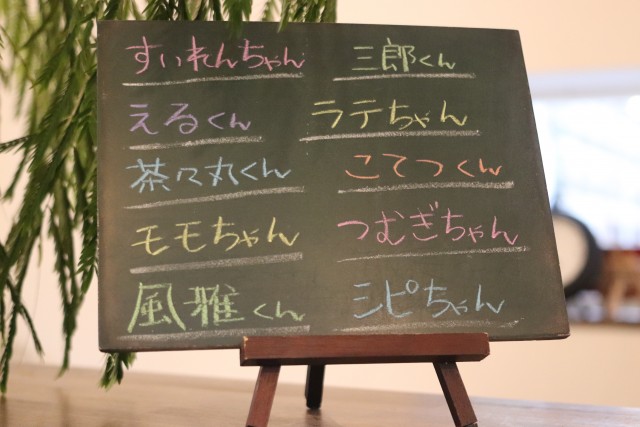 すいれんちゃん
三郎くん
えるくん
ラテちゃん
茶々丸くん
こてつくん
モモちゃん
つむぎちゃん
風雅くん
シピちゃん